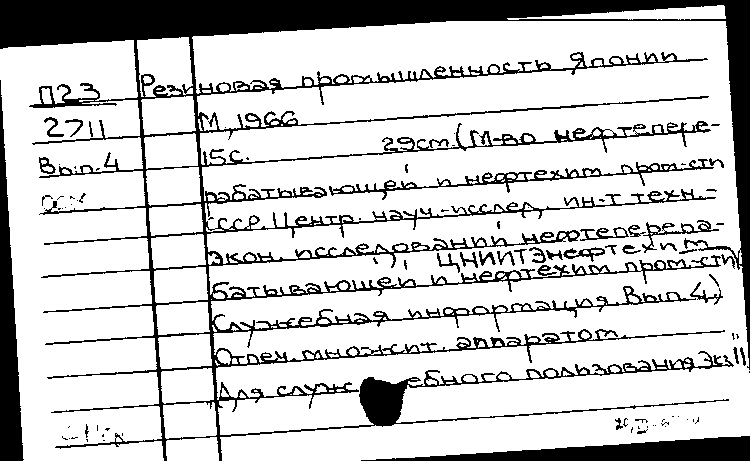 П23 Резиновая промышленность Японии
2711 М, 1966
Вып.4 15с. 29см. (М-во нефтепере-
рабатывающей и нефтехим. пром-сти
СССР. Центр. науч.-исслед. ин-т техн.-
экон. исследований нефтеперера-
ЦНИИТЭнефтехим
батывающей и нефтехим. пром-сти
Служебная информация. Вып.4)
Отпеч. множит. аппаратом.
"Для служебного пользования. Экз."